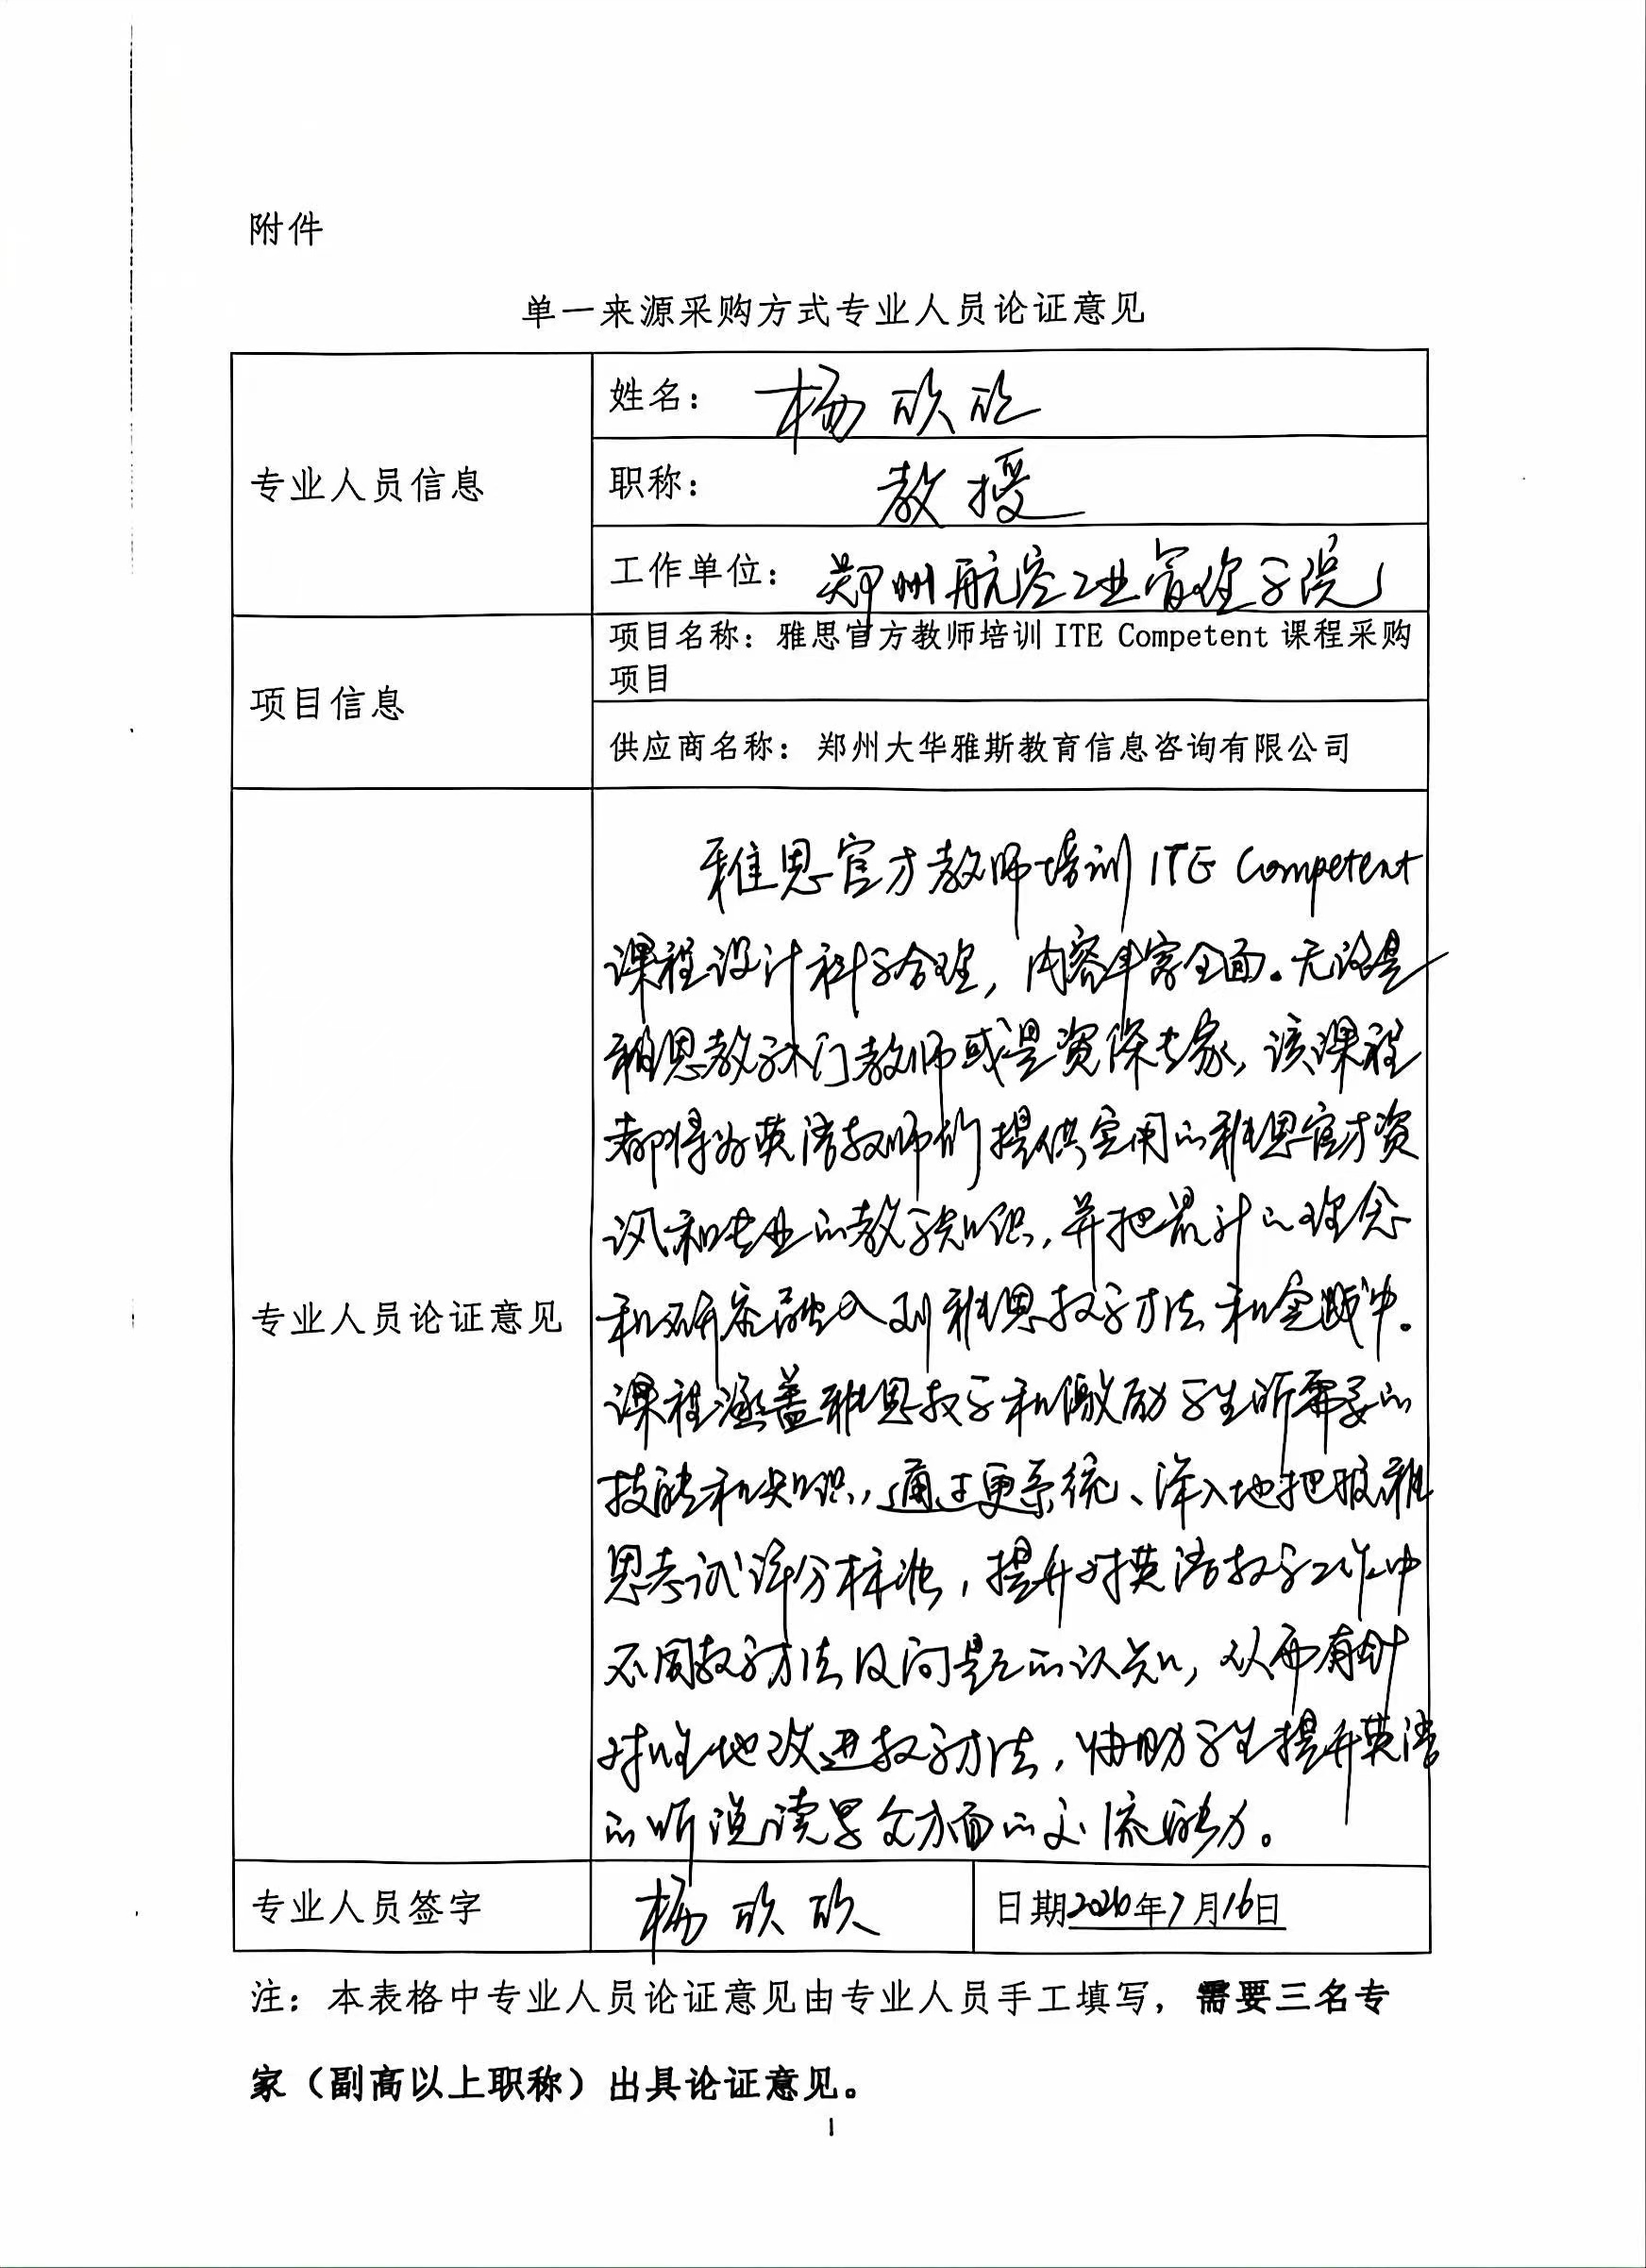 附件
单一来源采购方式专业人员论证意见
专业人员信息
姓名： 杨欣欣
职称： 教授
工作单位： 郑州航空工业管理学院
项目信息
项目名称：雅思官方教师培训 ITE Competent 课程采购
项目
供应商名称：郑州大华雅斯教育信息咨询有限公司
专业人员论证意见
雅思官方教师培训 ITE Competent
课程设计科学合理，内容丰富全面。无论是
雅思教学入门教师或是资深专家，该课程
都将为英语教师们提供实用的雅思官方资
讯和专业的教学知识，并把最新的理念
和研究融入到雅思教学方法和实践中。
课程涵盖雅思教学和激励学生所需要的
技能和知识，通过更系统、深入地把握雅
思考试评分标准，提升对英语教学工作中
不同教学方法及问题的认知，从而有针
对性地改进教学方法，协助学生提升英语
的听说读写全方面的交流能力。
专业人员签字
杨欣欣
日期2026年7月16日
注：本表格中专业人员论证意见由专业人员手工填写，需要三名专
家（副高以上职称）出具论证意见。
1